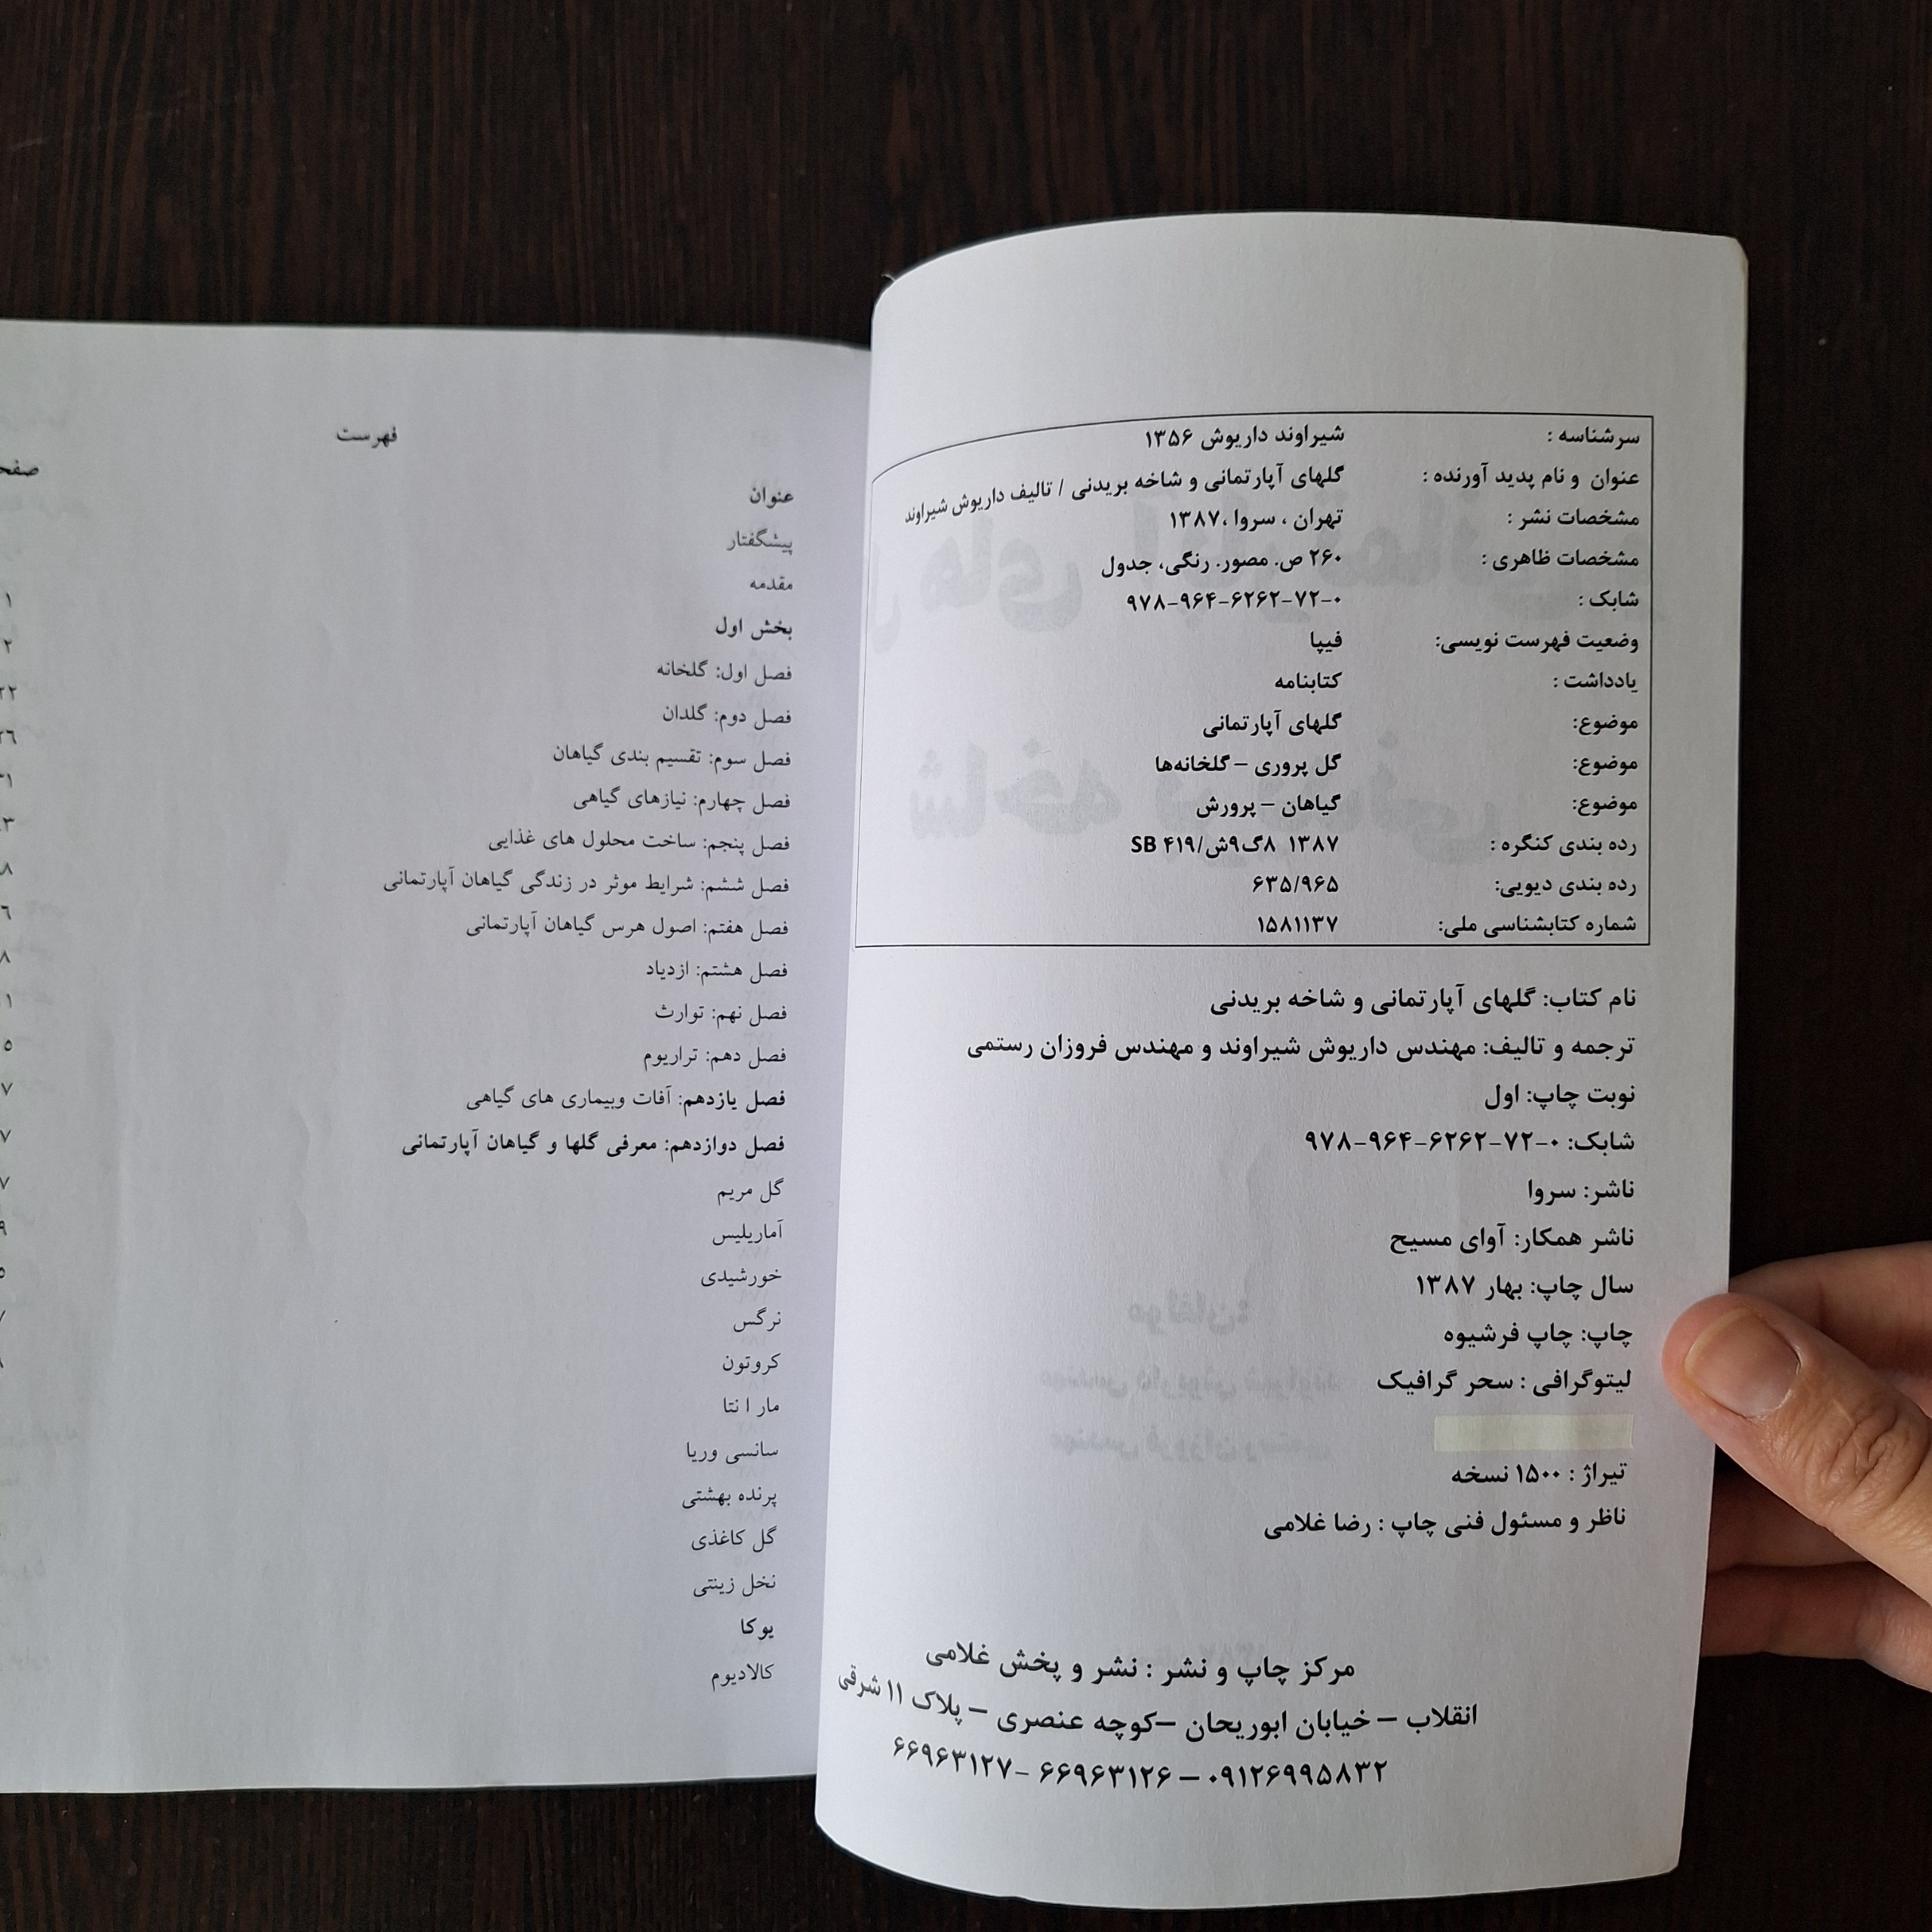 سرشناسه : شیراوند داریوش ۱۳۵۶
عنوان و نام پدید آورنده : گلهای آپارتمانی و شاخه بریدنی / تالیف داریوش شیراوند
مشخصات نشر : تهران ، سروا ،۱۳۸۷
مشخصات ظاهری : ۲۶۰ ص. مصور. رنگی، جدول
شابک : ۹۷۸-۹۶۴-۶۲۶۲-۷۲-۰
وضعیت فهرست نویسی: فیپا
یادداشت : کتابنامه
موضوع: گلهای آپارتمانی
موضوع: گل پروری – گلخانه‌ها
موضوع: گیاهان – پرورش
رده بندی کنگره : ۱۳۸۷ ۸گ۹ش/SB ۴۱۹
رده بندی دیویی: ۶۳۵/۹۶۵
شماره کتابشناسی ملی: ۱۵۸۱۱۳۷
نام کتاب: گلهای آپارتمانی و شاخه بریدنی
ترجمه و تالیف: مهندس داریوش شیراوند و مهندس فروزان رستمی
نوبت چاپ: اول
شابک: ۹۷۸-۹۶۴-۶۲۶۲-۷۲-۰
ناشر: سروا
ناشر همکار: آوای مسیح
سال چاپ: بهار ۱۳۸۷
چاپ: چاپ فرشیوه
لیتوگرافی : سحر گرافیک
تیراژ : ۱۵۰۰ نسخه
ناظر و مسئول فنی چاپ : رضا غلامی
مرکز چاپ و نشر : نشر و پخش غلامی
انقلاب – خیابان ابوریحان –کوچه عنصری – پلاک ۱۱ شرقی
۰۹۱۲۶۹۹۵۸۳۲ – ۶۶۹۶۳۱۲۶ -۶۶۹۶۳۱۲۷
فهرست
عنوان
پیشگفتار
مقدمه
بخش اول
فصل اول: گلخانه
فصل دوم: گلدان
فصل سوم: تقسیم بندی گیاهان
فصل چهارم: نیازهای گیاهی
فصل پنجم: ساخت محلول های غذایی
فصل ششم: شرایط موثر در زندگی گیاهان آپارتمانی
فصل هفتم: اصول هرس گیاهان آپارتمانی
فصل هشتم: ازدیاد
فصل نهم: توارث
فصل دهم: تراریوم
فصل یازدهم: آفات وبیماری های گیاهی
فصل دوازدهم: معرفی گلها و گیاهان آپارتمانی
گل مریم
آماریلیس
خورشیدی
نرگس
کروتون
مار ا نتا
سانسی وریا
پرنده بهشتی
گل کاغذی
نخل زینتی
یوکا
کالادیوم